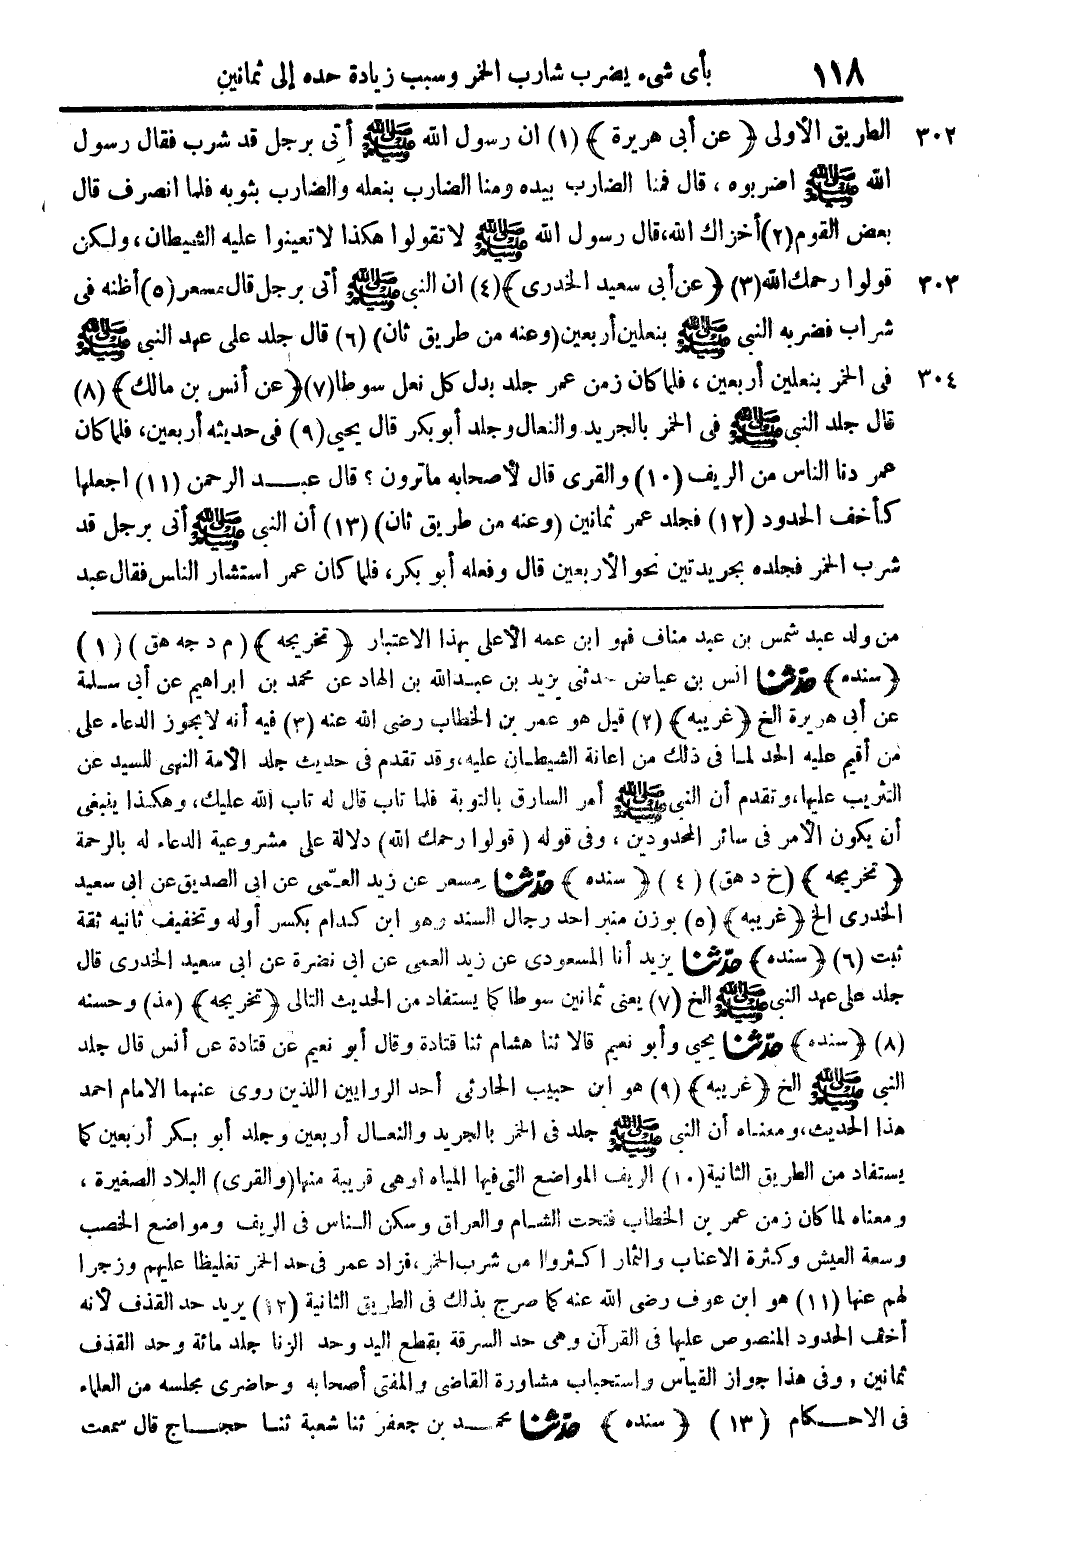 ١١٨ بأى شىء يضرب شارب الخمر وسبب زيادة حده إلى ثمانين
٣٠٢ الطريق الأولى ﴿ عن أبى هريرة ﴾ (١) ان رسول الله ﷺ أُتِى برجل قد شرب فقال رسول
الله ﷺ اضربوه ، قال فمنا الضارب بيده ومنا الضارب بنعله والضارب بثوبه فلما انصرف قال
بعض القوم(٢)أخزاك الله،قال رسول الله ﷺ لا تقولوا هكذا لاتعينوا عليه الشيطان، ولكن
٣٠٣ قولوا رحمك الله(٣) ﴿عن أبى سعيد الخدرى﴾(٤) ان النبى ﷺ أتى برجل قال مسعر(٥)أظنه فى
شراب فضربه النبى ﷺ بنعلين أربعين(وعنه من طريق ثان) (٦) قال جلد على عهد النبى ﷺ
٣٠٤ فى الخمر بنعلين أربعين ، فلما كان زمن عمر جلد بدل كل نعل سوطا(٧)﴿عن أنس بن مالك﴾ (٨)
قال جلد النبى ﷺ فى الخمر بالجريد والنعال وجلد أبو بكر قال يحيى(٩) فى حديثه أربعين، فلما كان
عمر دنا الناس من الريف (١٠) والقرى قال لأصحابه ماترون ؟ قال عبد الرحمن (١١) اجعلها
كأخف الحدود (١٢) فجلد عمر ثمانين (وعنه من طريق ثان) (١٣) أن النبى ﷺ أتى برجل قد
شرب الخمر فجلده بجريدتين نحو الأربعين قال وفعله أبو بكر، فلما كان عمر استشار الناس فقال عبد
من ولد عبد شمس بن عبد مناف فهو ابن عمه الأعلى بهذا الاعتبار ﴿ تخريجه ﴾ ( م د جه هق ) (١)
﴿سنده﴾ حدّثنا انس بن عياض حدثنى يزيد بن عبد الله بن الهاد عن محمد بن ابراهيم عن أبى سلمة
عن أبى هريرة الخ ﴿غريبه﴾ (٢) قيل هو عمر بن الخطاب رضى الله عنه (٣) فيه أنه لايجوز الدعاء على
من أقيم عليه الحد لما فى ذلك من اعانة الشيطان عليه،وقد تقدم فى حديث جلد الأمة النهى للسيد عن
التثريب عليها،وتقدم أن النبى ﷺ أمر السارق بالتوبة فلما تاب قال له تاب الله عليك، وهكذا ينبغى
أن يكون الأمر فى سائر المحدودين ، وفى قوله ( قولوا رحمك الله) دلالة على مشروعية الدعاء له بالرحمة
﴿ تخريجه ﴾ (خ د هق) (٤) ﴿ سنده ﴾ حدّثنا مسعر عن زيد العمّى عن ابى الصديق عن ابى سعيد
الخدرى الخ ﴿غريبه﴾ (٥) بوزن منبر احد رجال السند وهو ابن كدام بكسر أوله وتخفيف ثانيه ثقة
ثبت (٦) ﴿سنده﴾ حدّثنا يزيد أنا المسعودى عن زيد العمى عن ابى نضرة عن ابى سعيد الخدرى قال
جلد على عهد النبى ﷺ الخ (٧) يعنى ثمانين سوطا كما يستفاد من الحديث التالى ﴿تخريجه﴾ (مذ) وحسنه
(٨) ﴿سنده﴾ حدّثنا يحيى وأبو نعيم قالا ثنا هشام ثنا قتادة وقال أبو نعيم عن قتادة عن أنس قال جلد
النبى ﷺ الخ ﴿غريبه﴾ (٩) هو ابن حبيب الحارثى أحد الروايين اللذين روى عنهما الامام احمد
هذا الحديث،ومعناه أن النبى ﷺ جلد فى الخمر بالجريد والنعال أربعين وجلد أبو بكر أربعين كما
يستفاد من الطريق الثانية(١٠) الريف المواضع التى فيها المياه اوهى قريبة منها(والقرى) البلاد الصغيرة ،
ومعناه لما كان زمن عمر بن الخطاب فتحت الشام والعراق وسكن الناس فى الريف ومواضع الخصب
وسعة العيش وكثرة الاعناب والثمار اكثروا من شرب الخمر،فزاد عمر فى حد الخمر تغليظا عليهم وزجرا
لهم عنها (١١) هو ابن عوف رضى الله عنه كما صرح بذلك فى الطريق الثانية (١٢) يريد حد القذف لأنه
أخف الحدود المنصوص عليها فى القرآن وهى حد السرقة بقطع اليد وحد الزنا جلد مائة وحد القذف
ثمانين , وفى هذا جواز القياس واستحباب مشاورة القاضى والمفتى أصحابه وحاضرى مجلسه من العلماء
فى الاحكام (١٣) ﴿ سنده ﴾ حدّثنا محمد بن جعفر ثنا شعبة ثنا حجاج قال سمعت